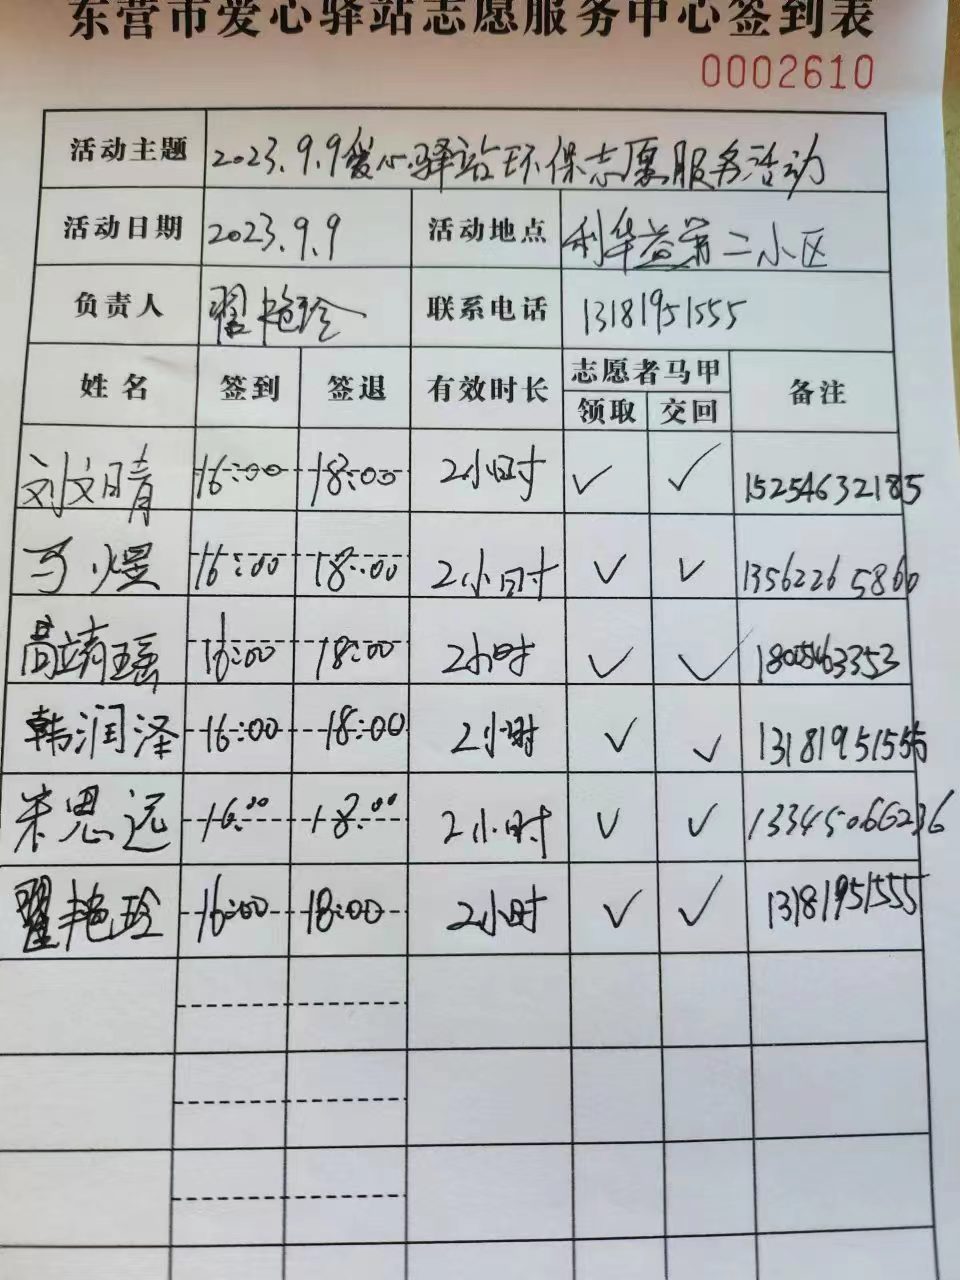 东营市爱心驿站志愿服务中心签到表
0002610
活动主题 2023.9.9爱心驿站环保志愿服务活动
活动日期 2023.9.9 活动地点 利华益第二小区
负责人 翟艳玲 联系电话 13181951555
姓名 签到 签退 有效时长 志愿者马甲 备注
领取 交回
刘文晴 16:00 18:00 2小时 ✓ ✓ 15254632185
马煜 16:00 18:00 2小时 ✓ ✓ 13562265860
高靖瑶 16:00 18:00 2小时 ✓ ✓
韩润泽 16:00 18:00 2小时 ✓ ✓ 13181951555
朱思远 16:00 18:00 2小时 ✓ ✓
翟艳玲 16:00 18:00 2小时 ✓ ✓ 13181951555